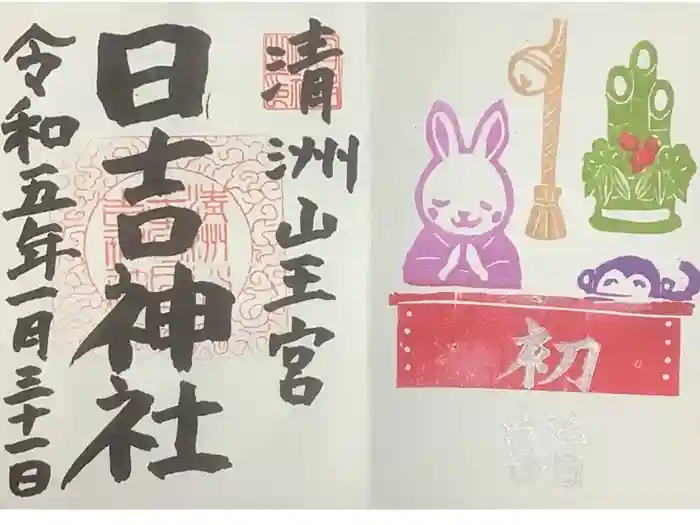 清洲山王宮
日吉神社
令和五年一月三十一日
初